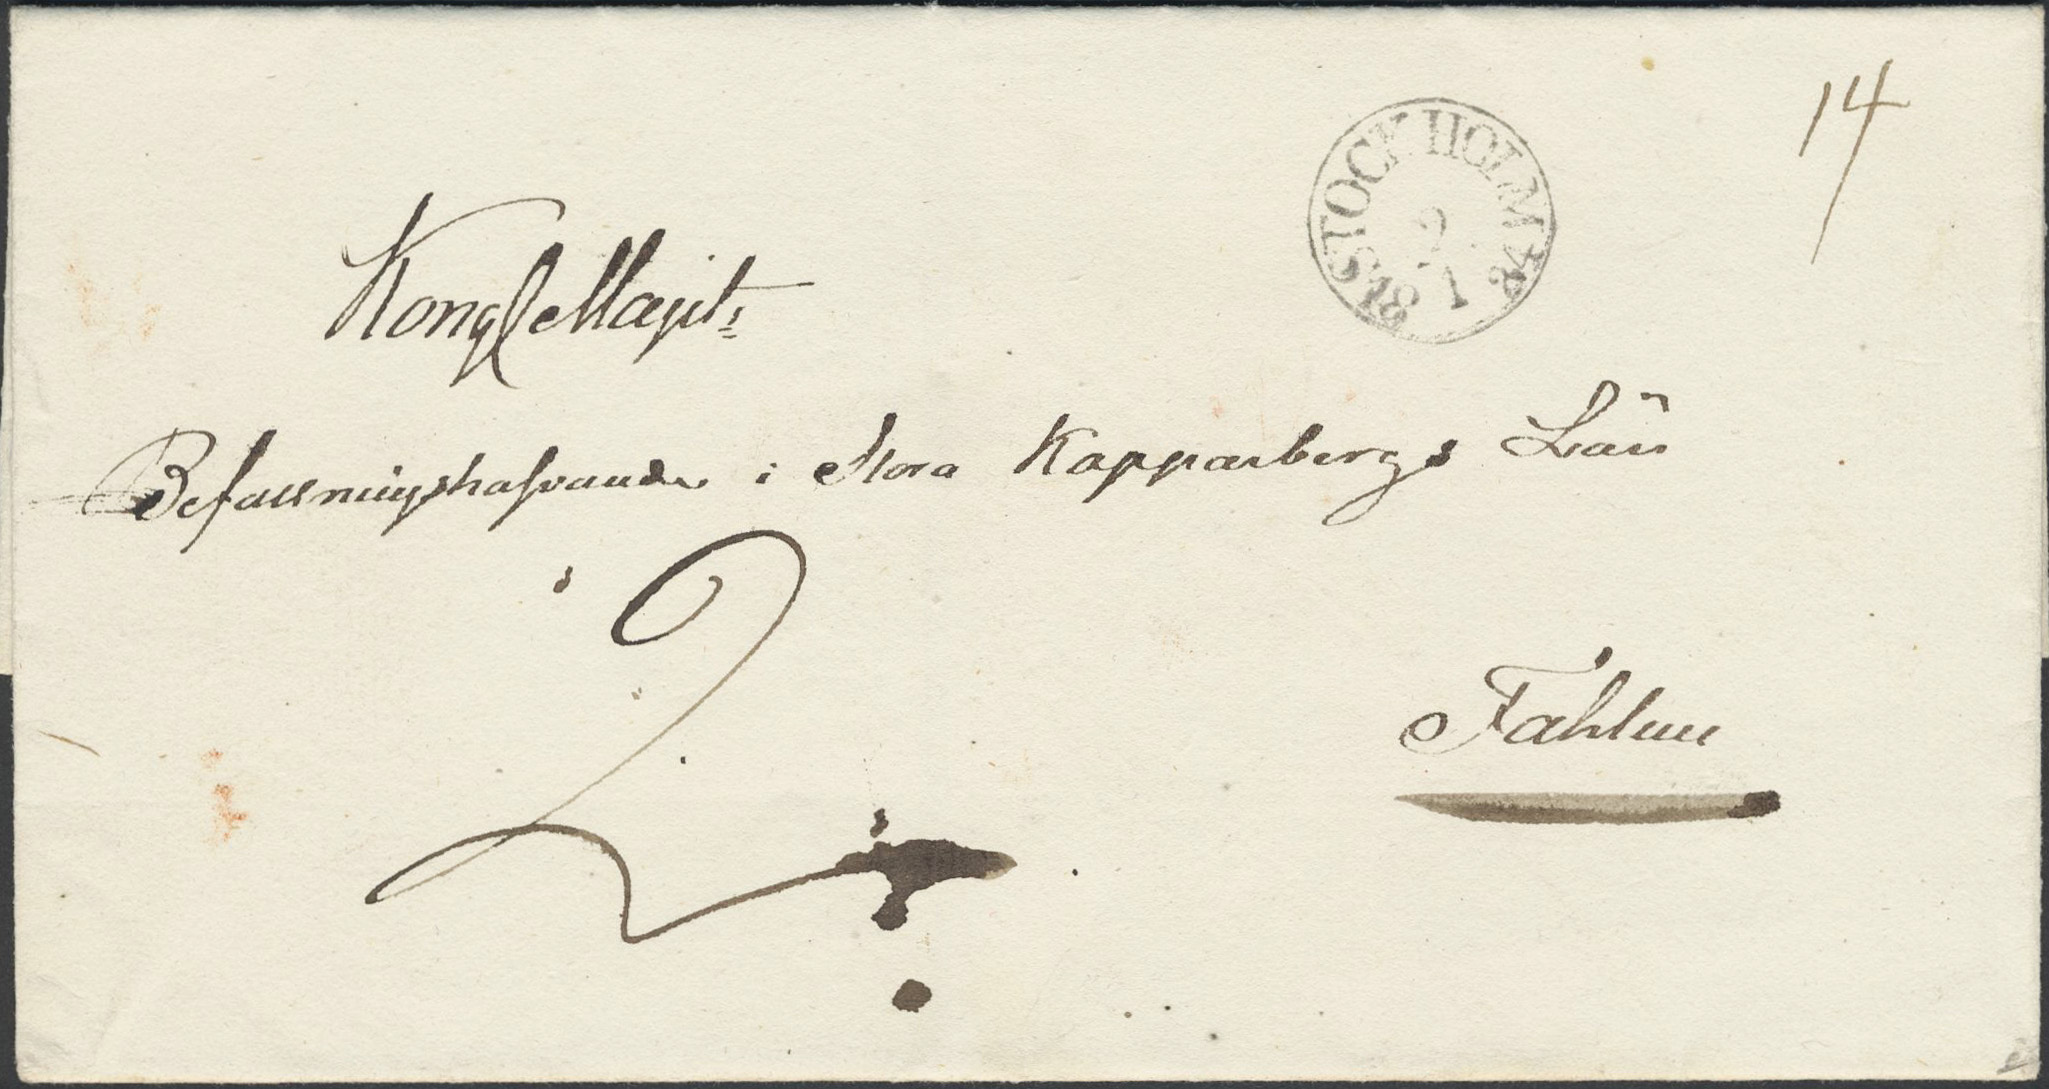 14
STOCKHOLM
9
1
Kongl Majits
Befallningshafvande i Stora Kopparbergs Län
2
Fahlun